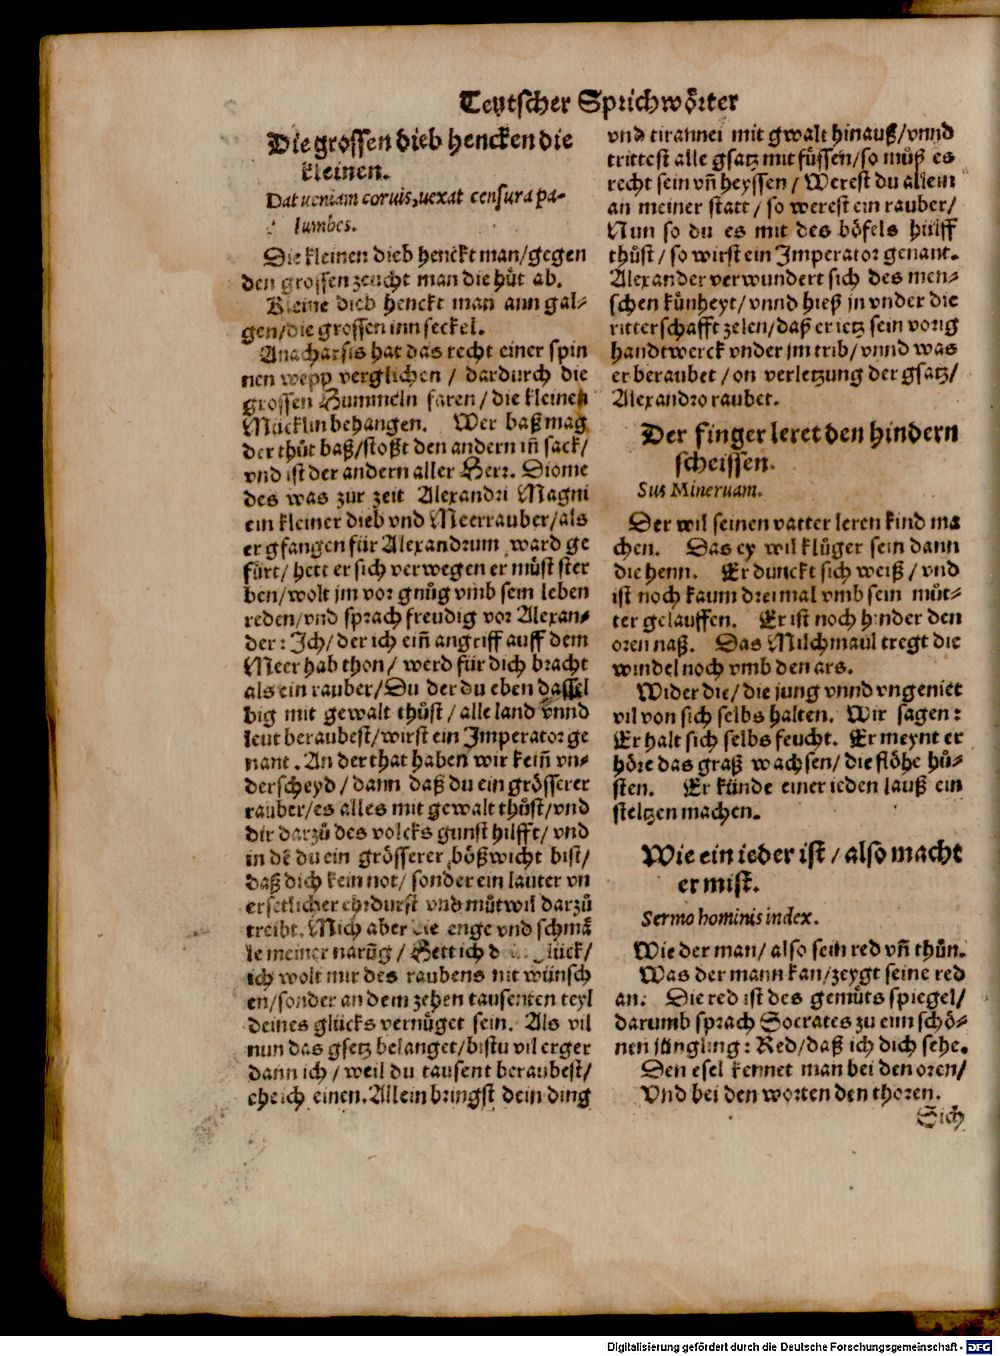 Teutscher Sprichwoͤrter
Die grossen dieb hencken die
kleinen.
Dat ueniam coruis, uexat censura pa-
lumbes.
Die kleinen dieb henckt man/gegen
den grossen zeucht man die huͤt ab.
Kleine dieb henckt man ann gal-
gen/die grossen inn seckel.
Anacharsis hat das recht einer spin
nen wepp verglichen / dardurch die
grossen Hummeln faren/die kleinen
Mücklin behangen. Wer baß mag
der thuͤt baß/stoßt den andern iñ sack/
vnd ist der andern aller Herr. Diome
des was zur zeit Alexandri Magni
ein kleiner dieb vnd Meerrauber/als
er gfangen für Alexandrum ward ge
fürt/ hett er sich verwegen er muͤst ster
ben/wolt jm vor gnuͦg vmb sein leben
reden/vnd sprach freudig vor Alexan-
der: Ich/der ich eiñ angriff auff dem
Meer hab thon/ werd für dich bracht
als ein rauber/Du der du eben dassel
big mit gewalt thuͦst/alle land vnnd
leut beraubest/wirst ein Imperator ge
nant. An der that haben wir keiñ vn-
derscheyd/dann daß du ein groͤsserer
rauber/es alles mit gewalt thuͦst/vnd
dir darzuͦ des volcks gunst hilfft/vnd
in dē du ein groͤsserer boͤßwicht bist/
daß dich kein not/ sonder ein lauter vn
ersetlicher ehrdurst vnd muͦtwil darzuͦ
treibt. Mich aber die enge vnd schmaͤ
le meiner narūg/ Hett ich d glück/
ich wolt mir des raubens nit wünsch
en/sonder an dem zehen tausenten teyl
deines glücks vernuͤget sein. Als vil
nun das gsetz belanget/bistu vil erger
dann ich/weil du tausent beraubest/
ehe ich einen. Allein bringst dein ding
vnd tirannei mit gwalt hinauß/vnnd
trittest alle gsatz mit fuͤssen/so muͦß es
recht sein vñ heyssen/Werest du allein
an meiner statt/so werest ein rauber/
Nun so du es mit des boͤfels hülff
thuͦst/so wirst ein Imperator genant.
Alexander verwundert sich des men-
schen künheyt/vnnd hieß jn vnder die
ritterschafft zelen/daß er ietz sein vorig
handtwerck vnder jm trib/vnnd was
er beraubet/on verletzung der gsatz/
Alexandro raubet.
Der finger leret den hindern
scheissen.
Sus Mineruam.
Der wil seinen vatter leren kind ma
chen. Das ey wil kluͤger sein dann
die henn. Er dunckt sich weiß/vnd
ist noch kaum drei mal vmb sein muͦt-
ter gelauffen. Er ist noch hinder den
oren naß. Das Milchmaul tregt die
windel noch vmb den ars.
Wider die/die jung vnnd vngeniet
vil von sich selbs halten. Wir sagen:
Er halt sich selbs feucht. Er meynt er
hoͤre das graß wachsen/die floͤhe huͦ-
sten. Er künde einer ieden lauß ein
steltzen machen.
Wie ein ieder ist/also macht
er mist.
Sermo hominis index.
Wie der man/also sein red vñ thuͦn.
Was der mann kan/zeygt seine red
an. Die red ist des gemuͤts spiegel/
darumb sprach Socrates zu einn schoͤ-
nen jüngling: Red/daß ich dich sehe.
Den esel kennet man bei den oren/
Vnd bei den worten den thoren.
Sich
Digitalisierung gefördert durch die Deutsche Forschungsgemeinschaft - DFG